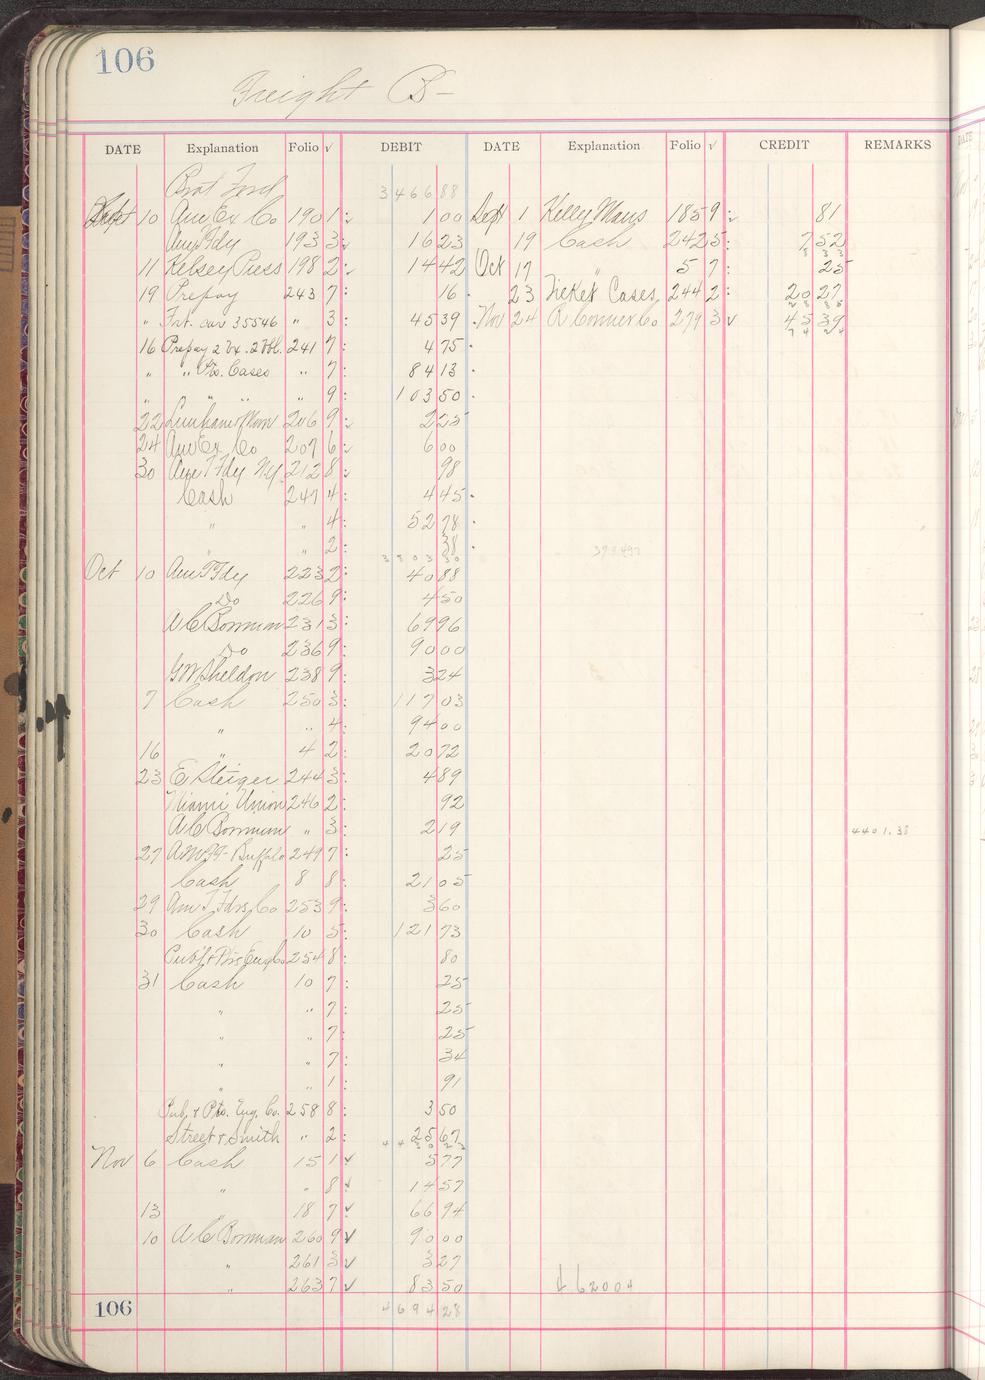 106
Freight B-
DATE Explanation Folio √ DEBIT DATE Explanation Folio √ CREDIT REMARKS
Brot Ford 3466 88
Sept 10 Am Ex Co 190 1 1 00 Sept 1 Kelly Maus 185 9 81
Am T Fdy 193 3 16 23 19 Cash 242 5 7 52
11 Kelsey Press 198 2 14 42 Oct 17 " 5 7 25
19 Prepay 243 7 16 23 Ticket Cases 244 2 20 27
" Frt. car 35546 " 3 45 39 Nov 24 R Conner Co 279 3 √ 45 39
16 Prepay 2 bx. 2 bbl. 241 7 4 75
" " Cases " 7 84 13
" " " 9 103 50
22 206 9 2 25
24 Am Ex Co 207 6 6 00
30 Am T Fdy N.Y. 212 8 98
Cash 247 4 4 45
" " 4 52 78
" " 2 38
3803 30
Oct 10 Am T Fdy 223 2 40 88
Do 226 9 4 50
A C Bornman 231 3 69 96
Do 236 9 90 00
G W Sheldon 238 9 3 24
7 Cash 250 3 117 03
" " 4 94 00
16 " 4 2 20 72
23 E Steiger 244 3 4 89
Miami Union 246 2 92
A C Bornman " 3 2 19 4401.38
27 Buffalo 249 7 25
Cash 8 8 21 05
29 Am T Fdrs Co 253 9 3 60
30 Cash 10 5 121 73
Pub & Ptrs Eng Co 254 8 80
31 Cash 10 7 25
" " 7 25
" 7 25
" " 7 34
" " 1 91
Pub. & Pts. Eng. Co. 258 8 3 50
Street & Smith " 2 25 67
Nov 6 Cash 15 1 √ 5 77
" " 8 √ 14 57
13 " 18 7 √ 66 94
10 A C Bornman 260 9 √ 90 00
" 261 3 √ 3 27
" 263 7 √ 83 50 462004
106 4694 28